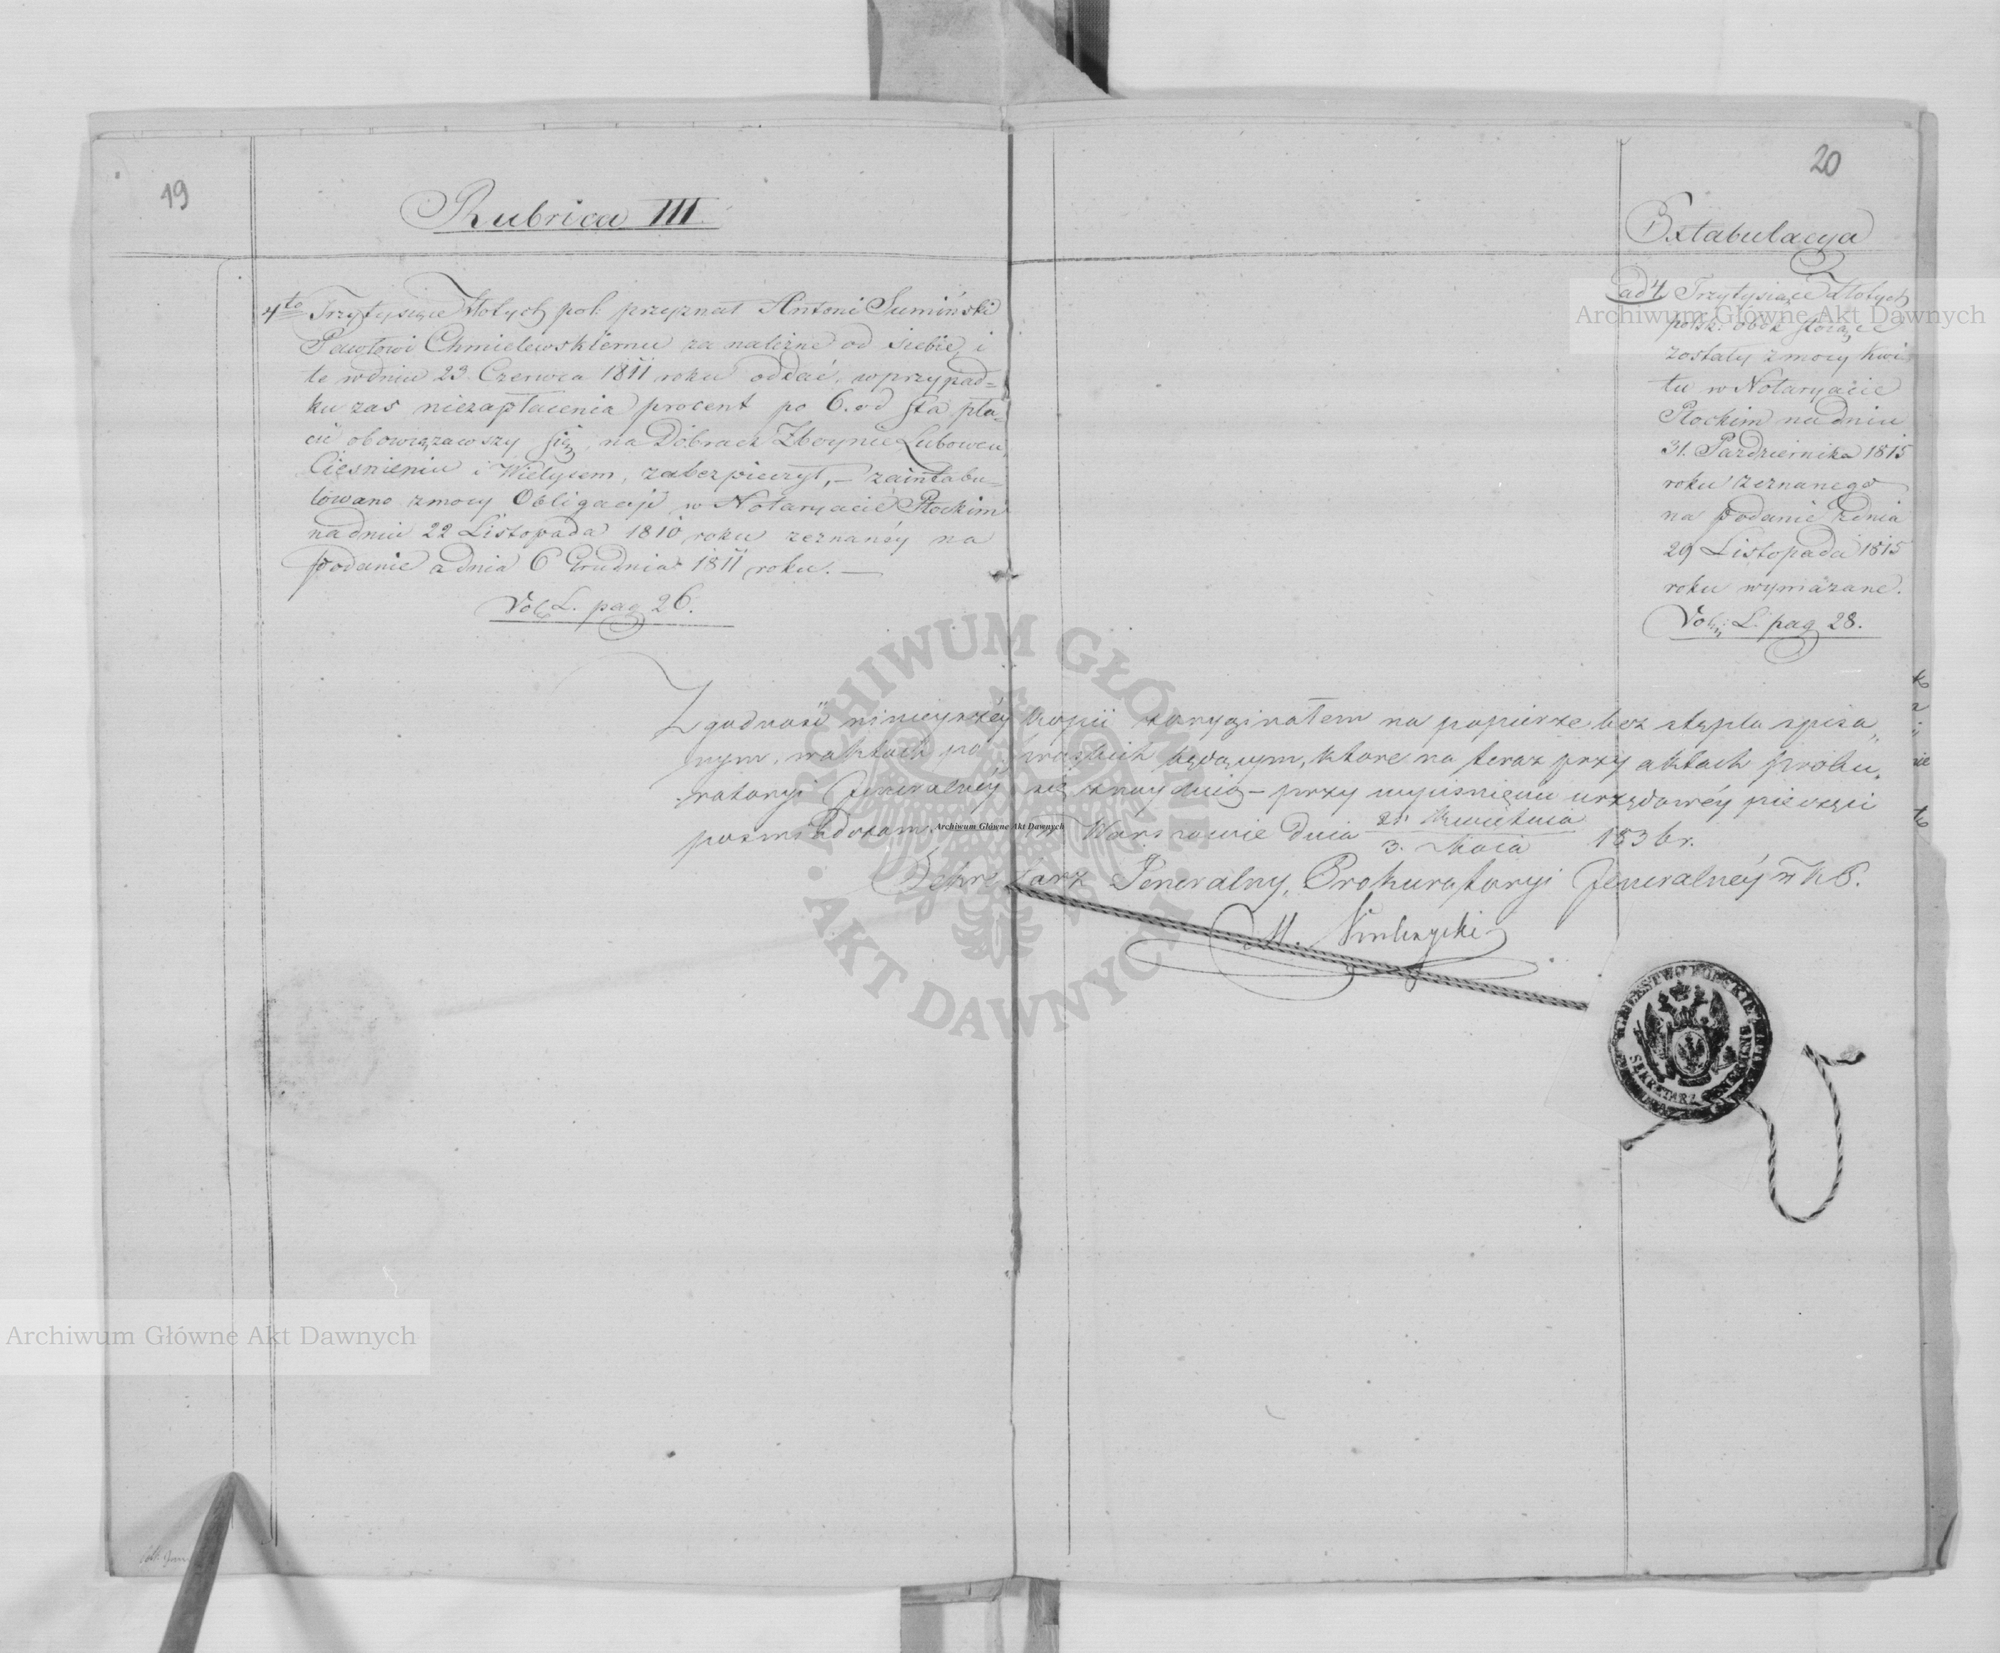 19
Rubrica III.
4to Trzytysiące Złotych pol: przyznał Antoni Sumiński
Pawłowi Chmielewskiemu za należne od siebie, i
te w dniu 23 Czerwca 1811 roku oddać, w przypad=
ku zas niezapłacenia procent po 6. od sta pła=
cić obowiązawszy się, na Dobrach Zboynie, Lubowcu,
Cięsnieniu i Wielgiem, zabezpieczył, – zaintabu=
lowano z mocy Obligacyi w Notaryacie Płockim
na dniu 22 Listopada 1810 roku zeznanéy na
podanie z dnia 6 Grudnia 1811 roku. –
Vol. L. pag 26.
20
Extabulacya
ad 4 Trzytysiące Złotych
polsk: obok stoiące
zostały z mocy kwi
tu w Notaryacie
Płockim na dniu
31. Pazdziernika 1815
roku zeznanego
na podanie z dnia
29 Listopada 1815
roku wymazane.
Vol: L. pag 28.
Zgodność ninieyszéy kopii z oryginałem na papierze bez stępla spisa„
nym, w aktach po pruskich będącym, które na teraz przy aktach Proku„
ratoryi Jeneralnéy się znayduią – przy wyciśnieniu urzędowéy pieczęci
poswiadczam w Warszawie dnia 21 Kwietnia / 3. Maia 1836 r.
Sekretarz Jeneralny, Prokuratoryi Jeneralnéy w K. P.
KRÓLESTWO POLSKIE
SEKRETARZ GENERALNY
Archiwum Główne Akt Dawnych
Archiwum Główne Akt Dawnych
Archiwum Główne Akt Dawnych
ARCHIWUM GŁÓWNE
AKT DAWNYCH